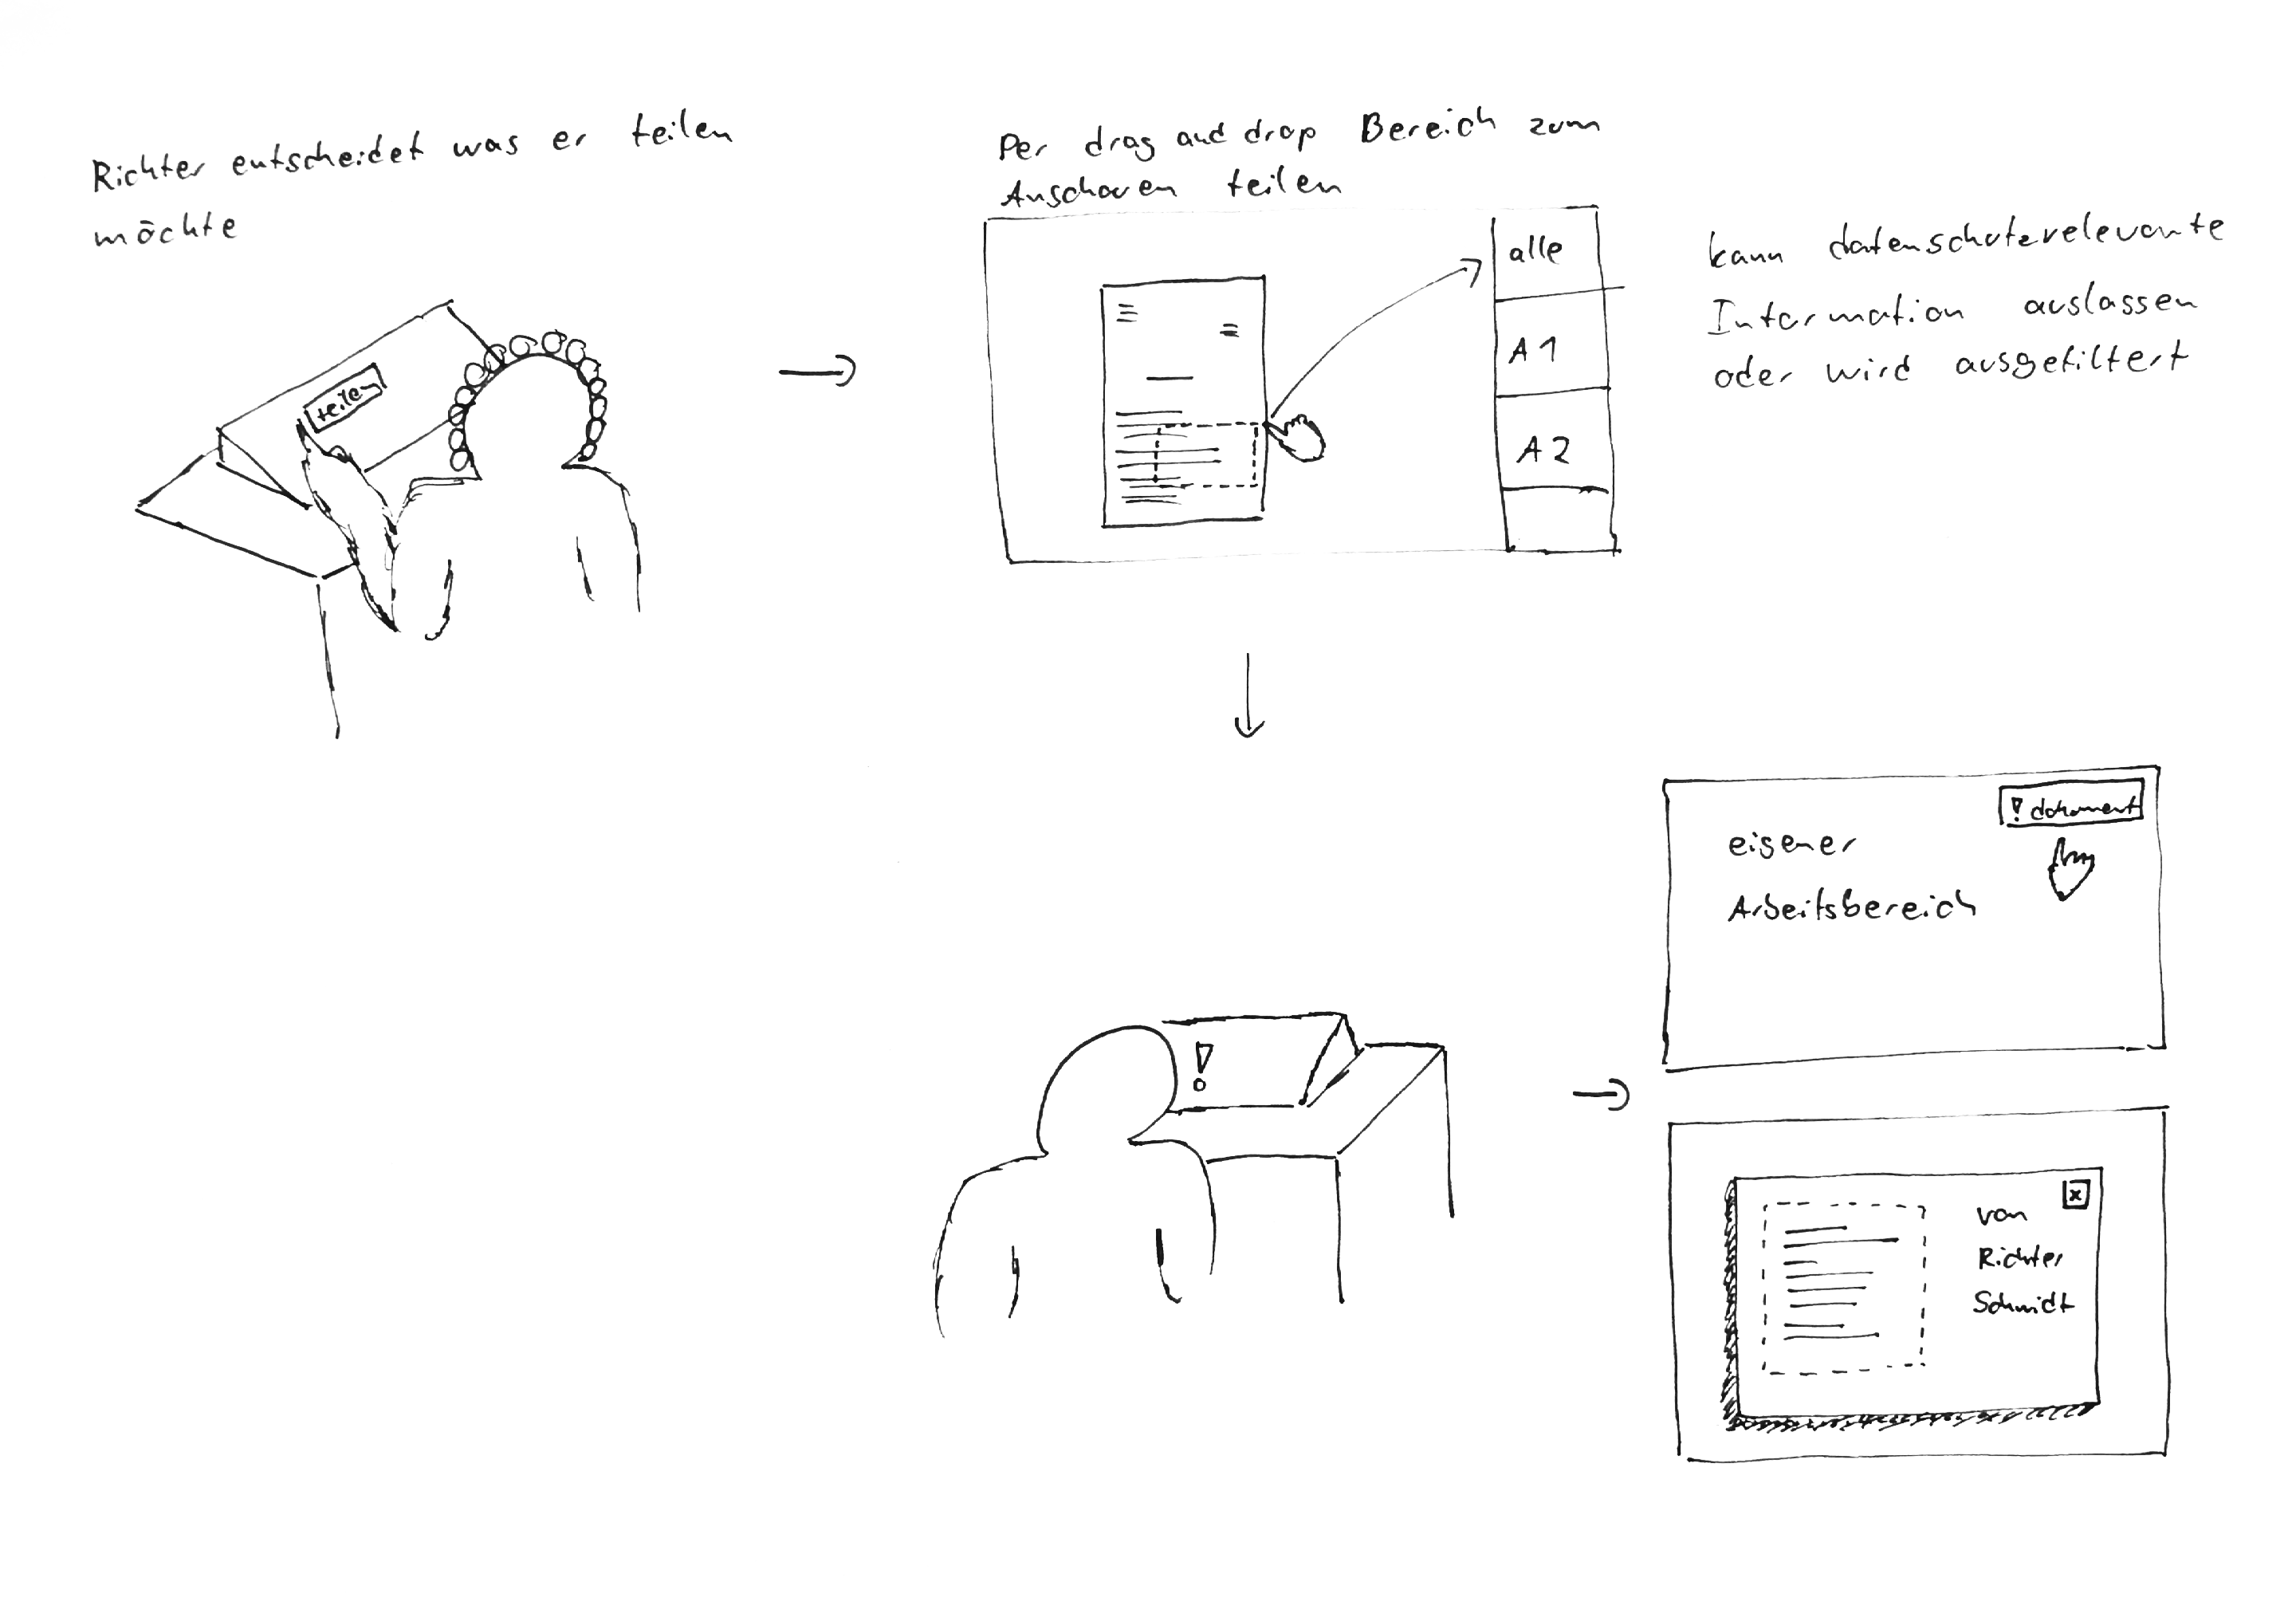 Richter entscheidet was er teilen
möchte
teilen
Per drag and drop Bereich zum
Anschauen teilen
alle
A1
A2
kann datenschutzrelevante
Information auslassen
oder wird ausgefiltert
!
! dokument
eigener
Arbeitsbereich
x
von
Richter
Schmidt